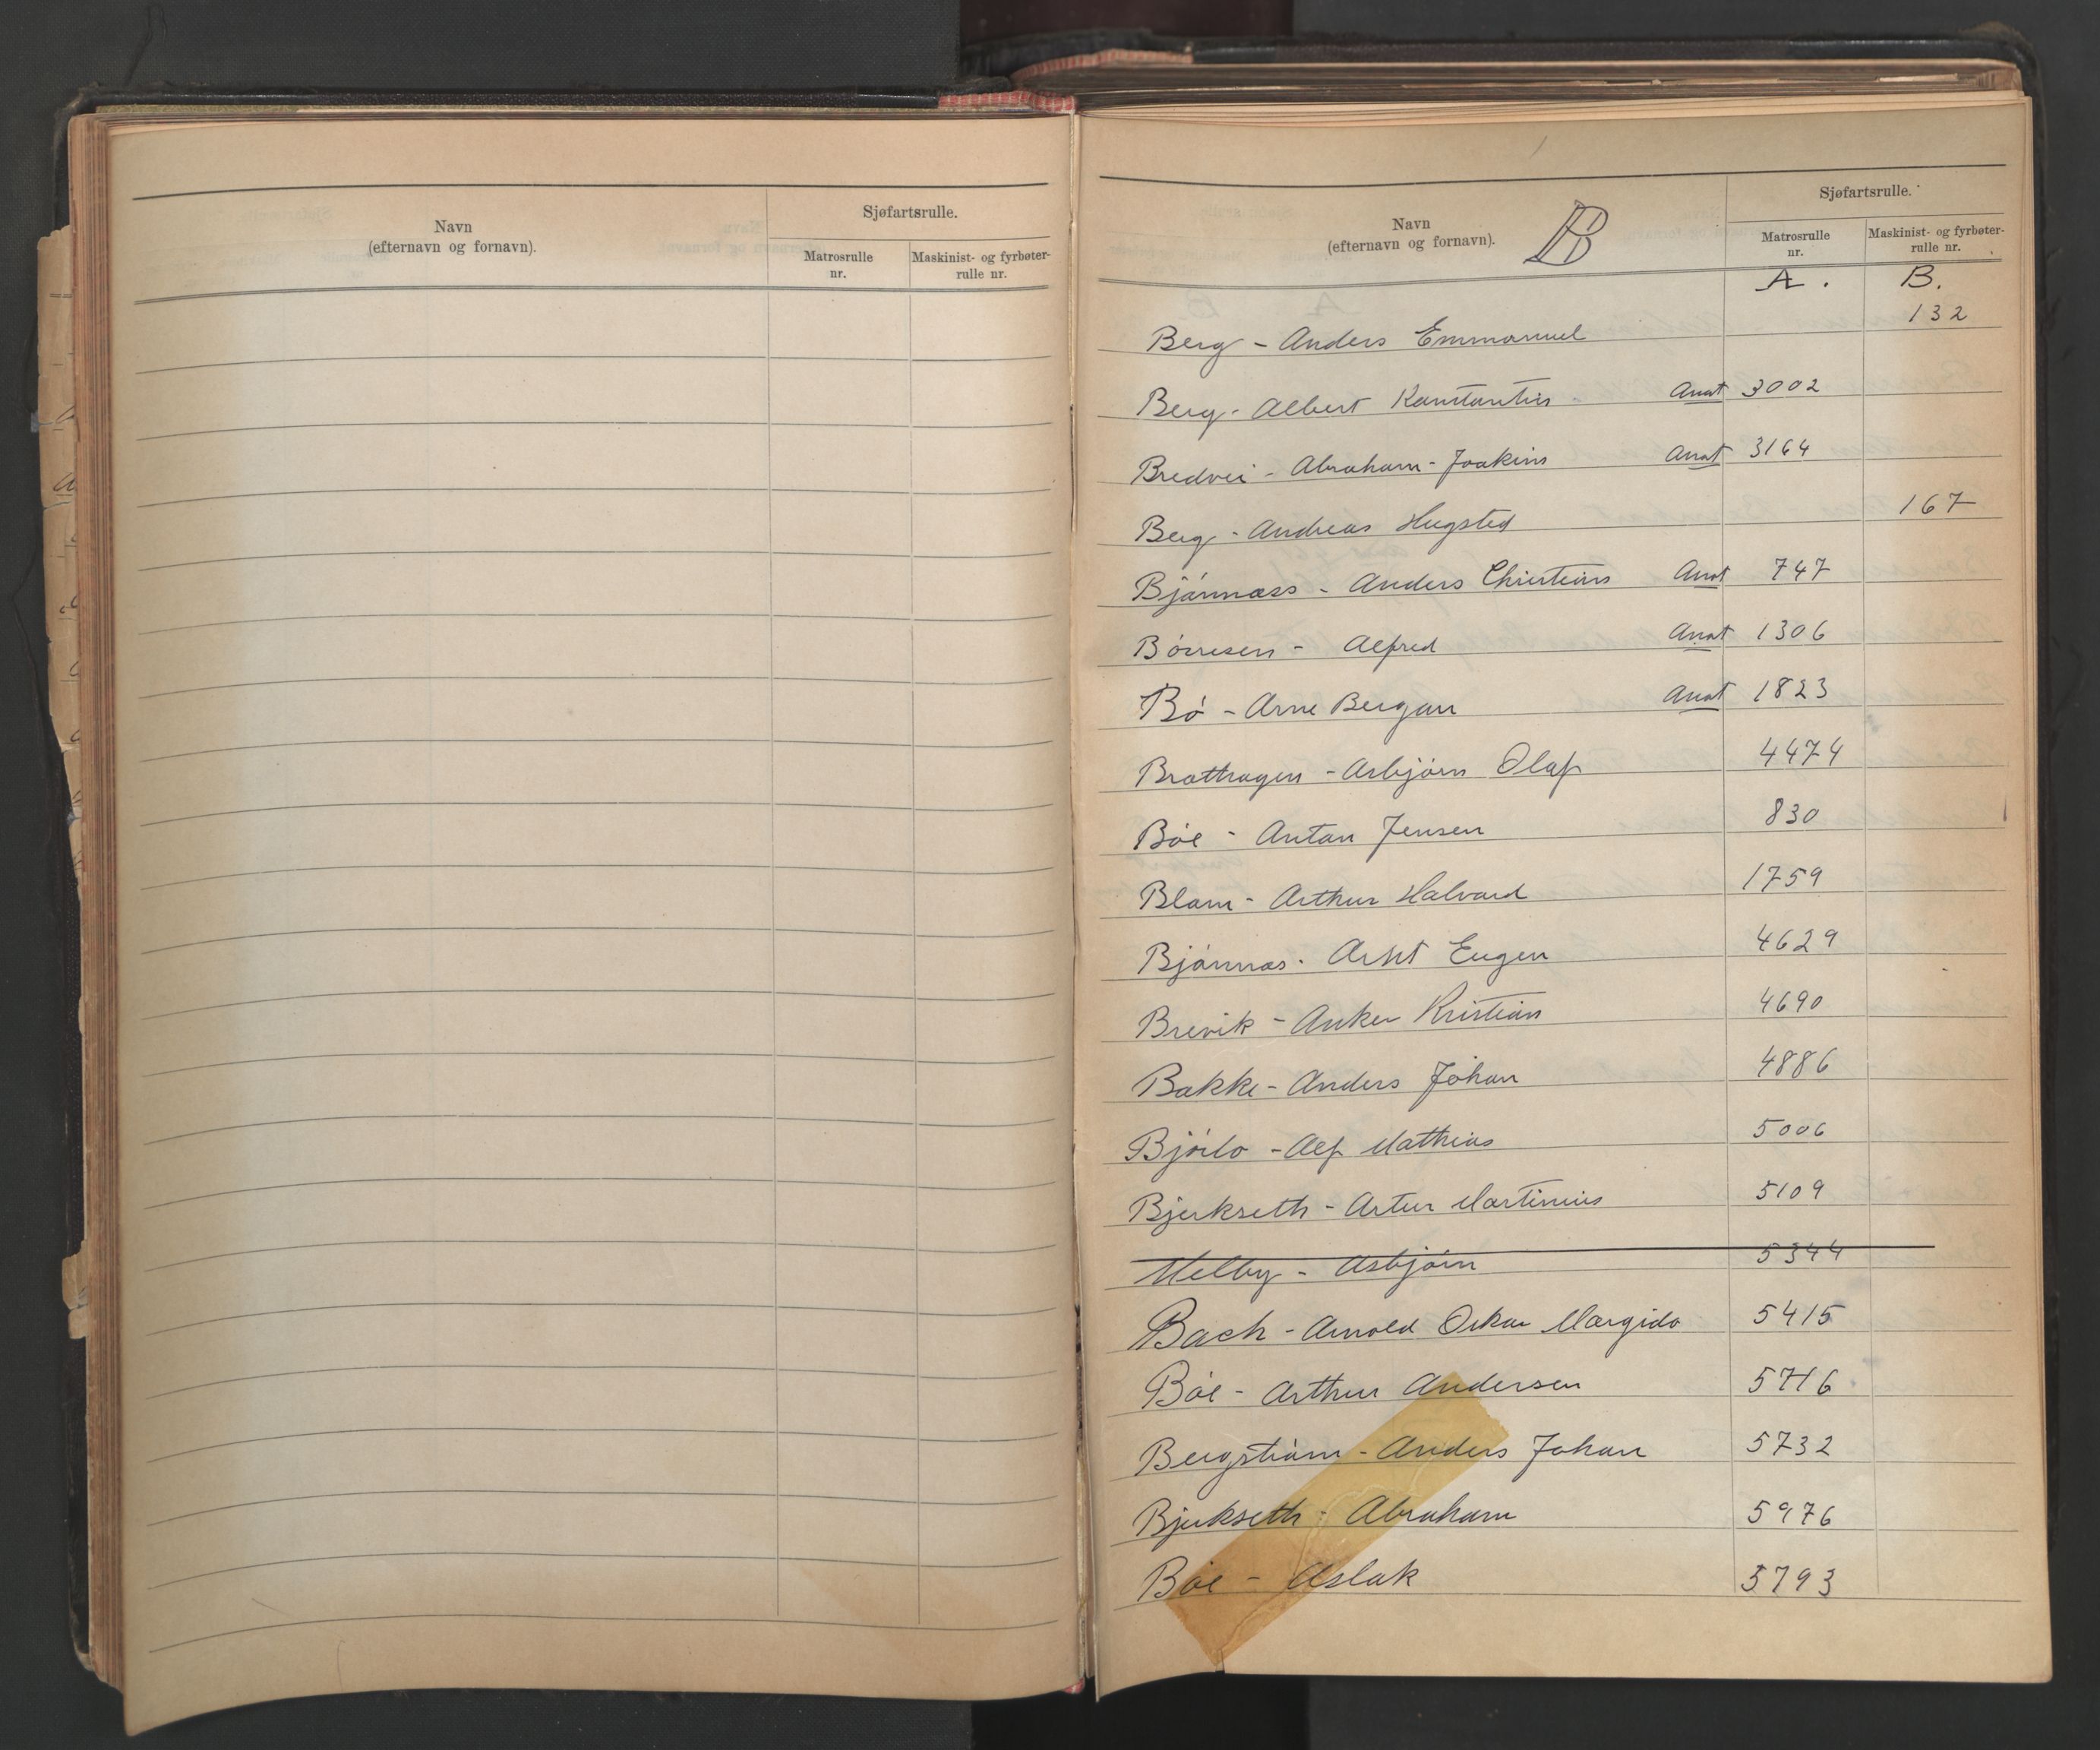 Navn
(efternavn og fornavn).
Sjøfartsrulle.
Matrosrulle
nr.
Maskinist- og fyrbøter-
rulle nr.
Navn
(efternavn og fornavn).
B
Sjøfartsrulle.
Matrosrulle
nr.
Maskinist- og fyrbøter-
rulle nr.
A. B.
Berg - Anders Emmanuel 132
Berg - Albert Konstantin Anot 3002
Bredvei - Abraham - Joakim Anot 3164
Berg - Andreas Hugsted 167
Bjónnæss - Anders Christian Anot 747
Bórresen - Alfred Anot 1306
Bó - Arne Bergan Anot 1823
Brathagen - Asbjórn Olaf 4474
Bóe - Anton Jensen 830
Blom - Arthur Halvard 1759
Bjónnas - Eugen 4629
Brevik - Anker Kristian 4690
Bakke - Anders Johan 4886
Bjórlo - Alf Mathias 5006
Bjerkseth - Artur Martinius 5109
Melby - Asbjórn 5344
Bach - Arnold Oskar Margido 5415
Bóe - Arthur Andersen 5716
Bergstróm - Anders Johan 5732
Bjerkseth - Abraham 5976
Bóe - Aslak 5793